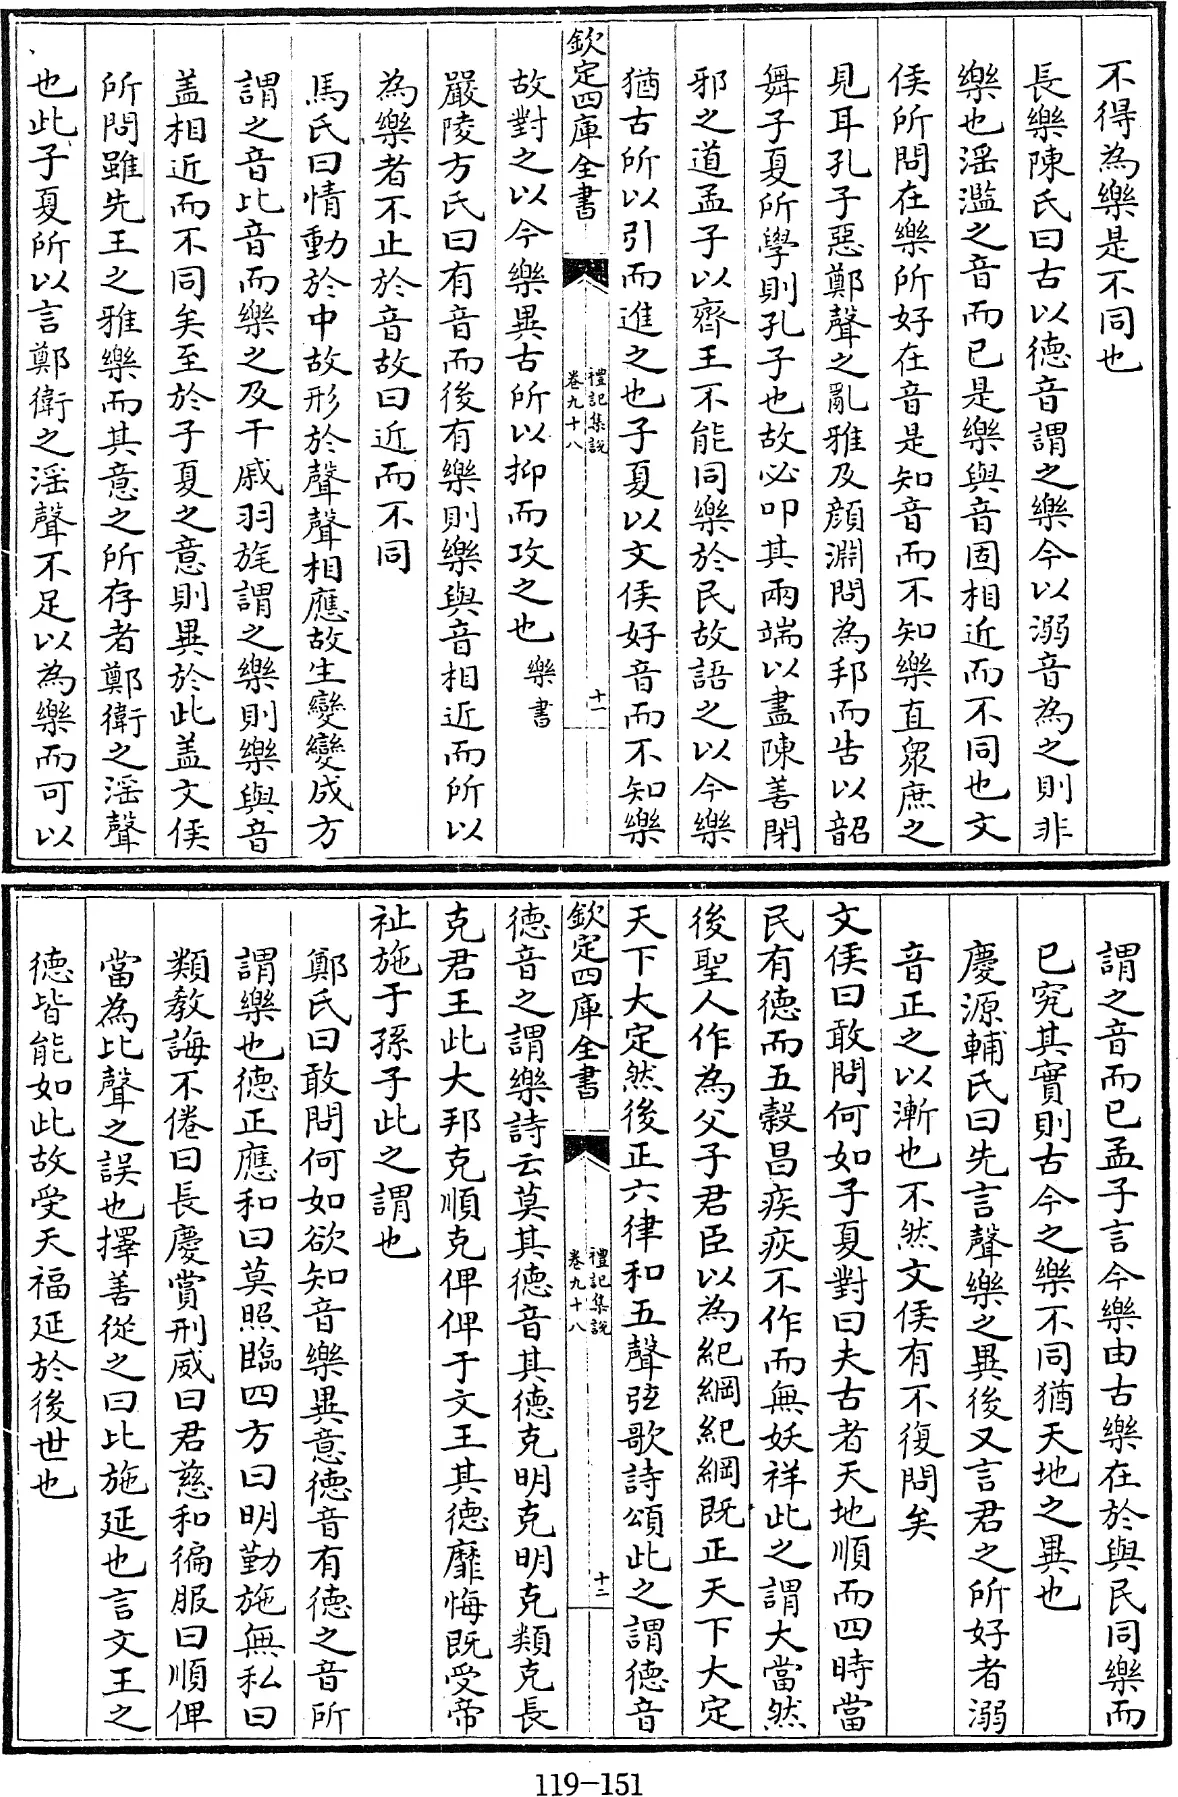 不得為樂是不同也
長樂陳氏曰古以德音謂之樂今以溺音為之則非
樂也淫濫之音而已是樂與音固相近而不同也文
侯所問在樂所好在音是知音而不知樂直衆庶之
見耳孔子惡鄭聲之亂雅及顔淵問為邦而告以韶
舞子夏所學則孔子也故必叩其兩端以盡陳善閉
邪之道孟子以齊王不能同樂於民故語之以今樂
猶古所以引而進之也子夏以文侯好音而不知樂
欽定四庫全書
禮記集説
卷九十八
十一
故對之以今樂異古所以抑而攻之也 樂書
嚴陵方氏曰有音而後有樂則樂與音相近而所以
為樂者不止於音故曰近而不同
馬氏曰情動於中故形於聲聲相應故生變變成方
謂之音比音而樂之及干戚羽旄謂之樂則樂與音
盖相近而不同矣至於子夏之意則異於此盖文侯
所問雖先王之雅樂而其意之所存者鄭衛之淫聲
也此子夏所以言鄭衛之淫聲不足以為樂而可以
謂之音而已孟子言今樂由古樂在於與民同樂而
已究其實則古今之樂不同猶天地之異也
慶源輔氏曰先言聲樂之異後又言君之所好者溺
音正之以漸也不然文侯有不復問矣
文侯曰敢問何如子夏對曰夫古者天地順而四時當
民有德而五穀昌疾疢不作而無妖祥此之謂大當然
後聖人作為父子君臣以為紀綱紀綱既正天下大定
天下大定然後正六律和五聲弦歌詩頌此之謂德音
欽定四庫全書
禮記集説
卷九十八
十二
德音之謂樂詩云莫其德音其德克明克明克類克長
克君王此大邦克順克俾俾于文王其德靡悔既受帝
祉施于孫子此之謂也
鄭氏曰敢問何如欲知音樂異意德音有德之音所
謂樂也德正應和曰莫照臨四方曰明勤施無私曰
類教誨不倦曰長慶賞刑威曰君慈和徧服曰順俾
當為比聲之誤也擇善從之曰比施延也言文王之
德皆能如此故受天福延於後世也
119-151